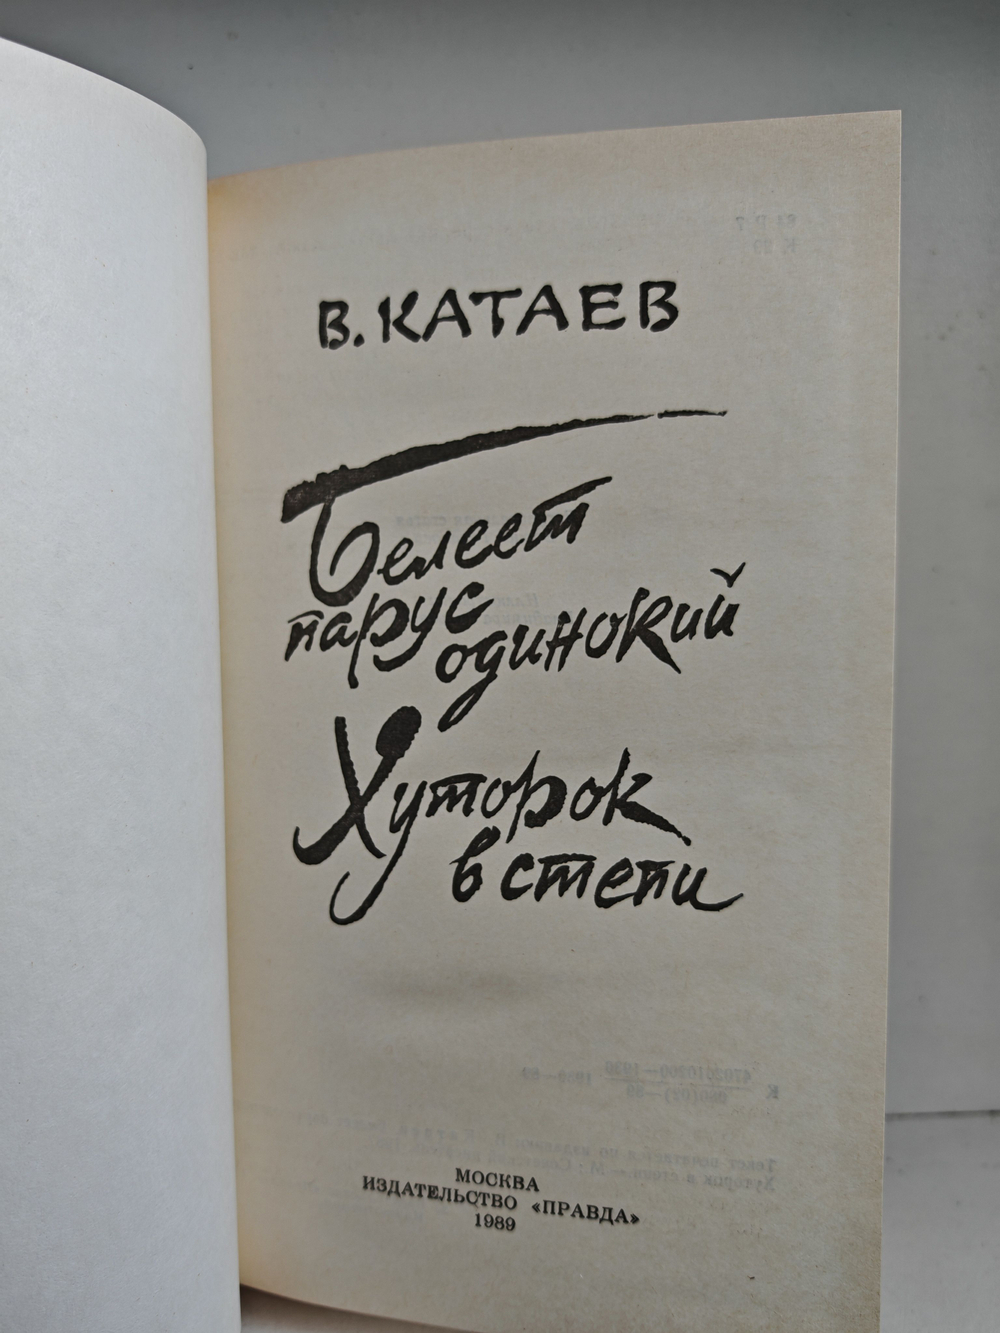 В. КАТАЕВ
Белеет
парус
одинокий
Хуторок
в степи
МОСКВА
ИЗДАТЕЛЬСТВО «ПРАВДА»
1989